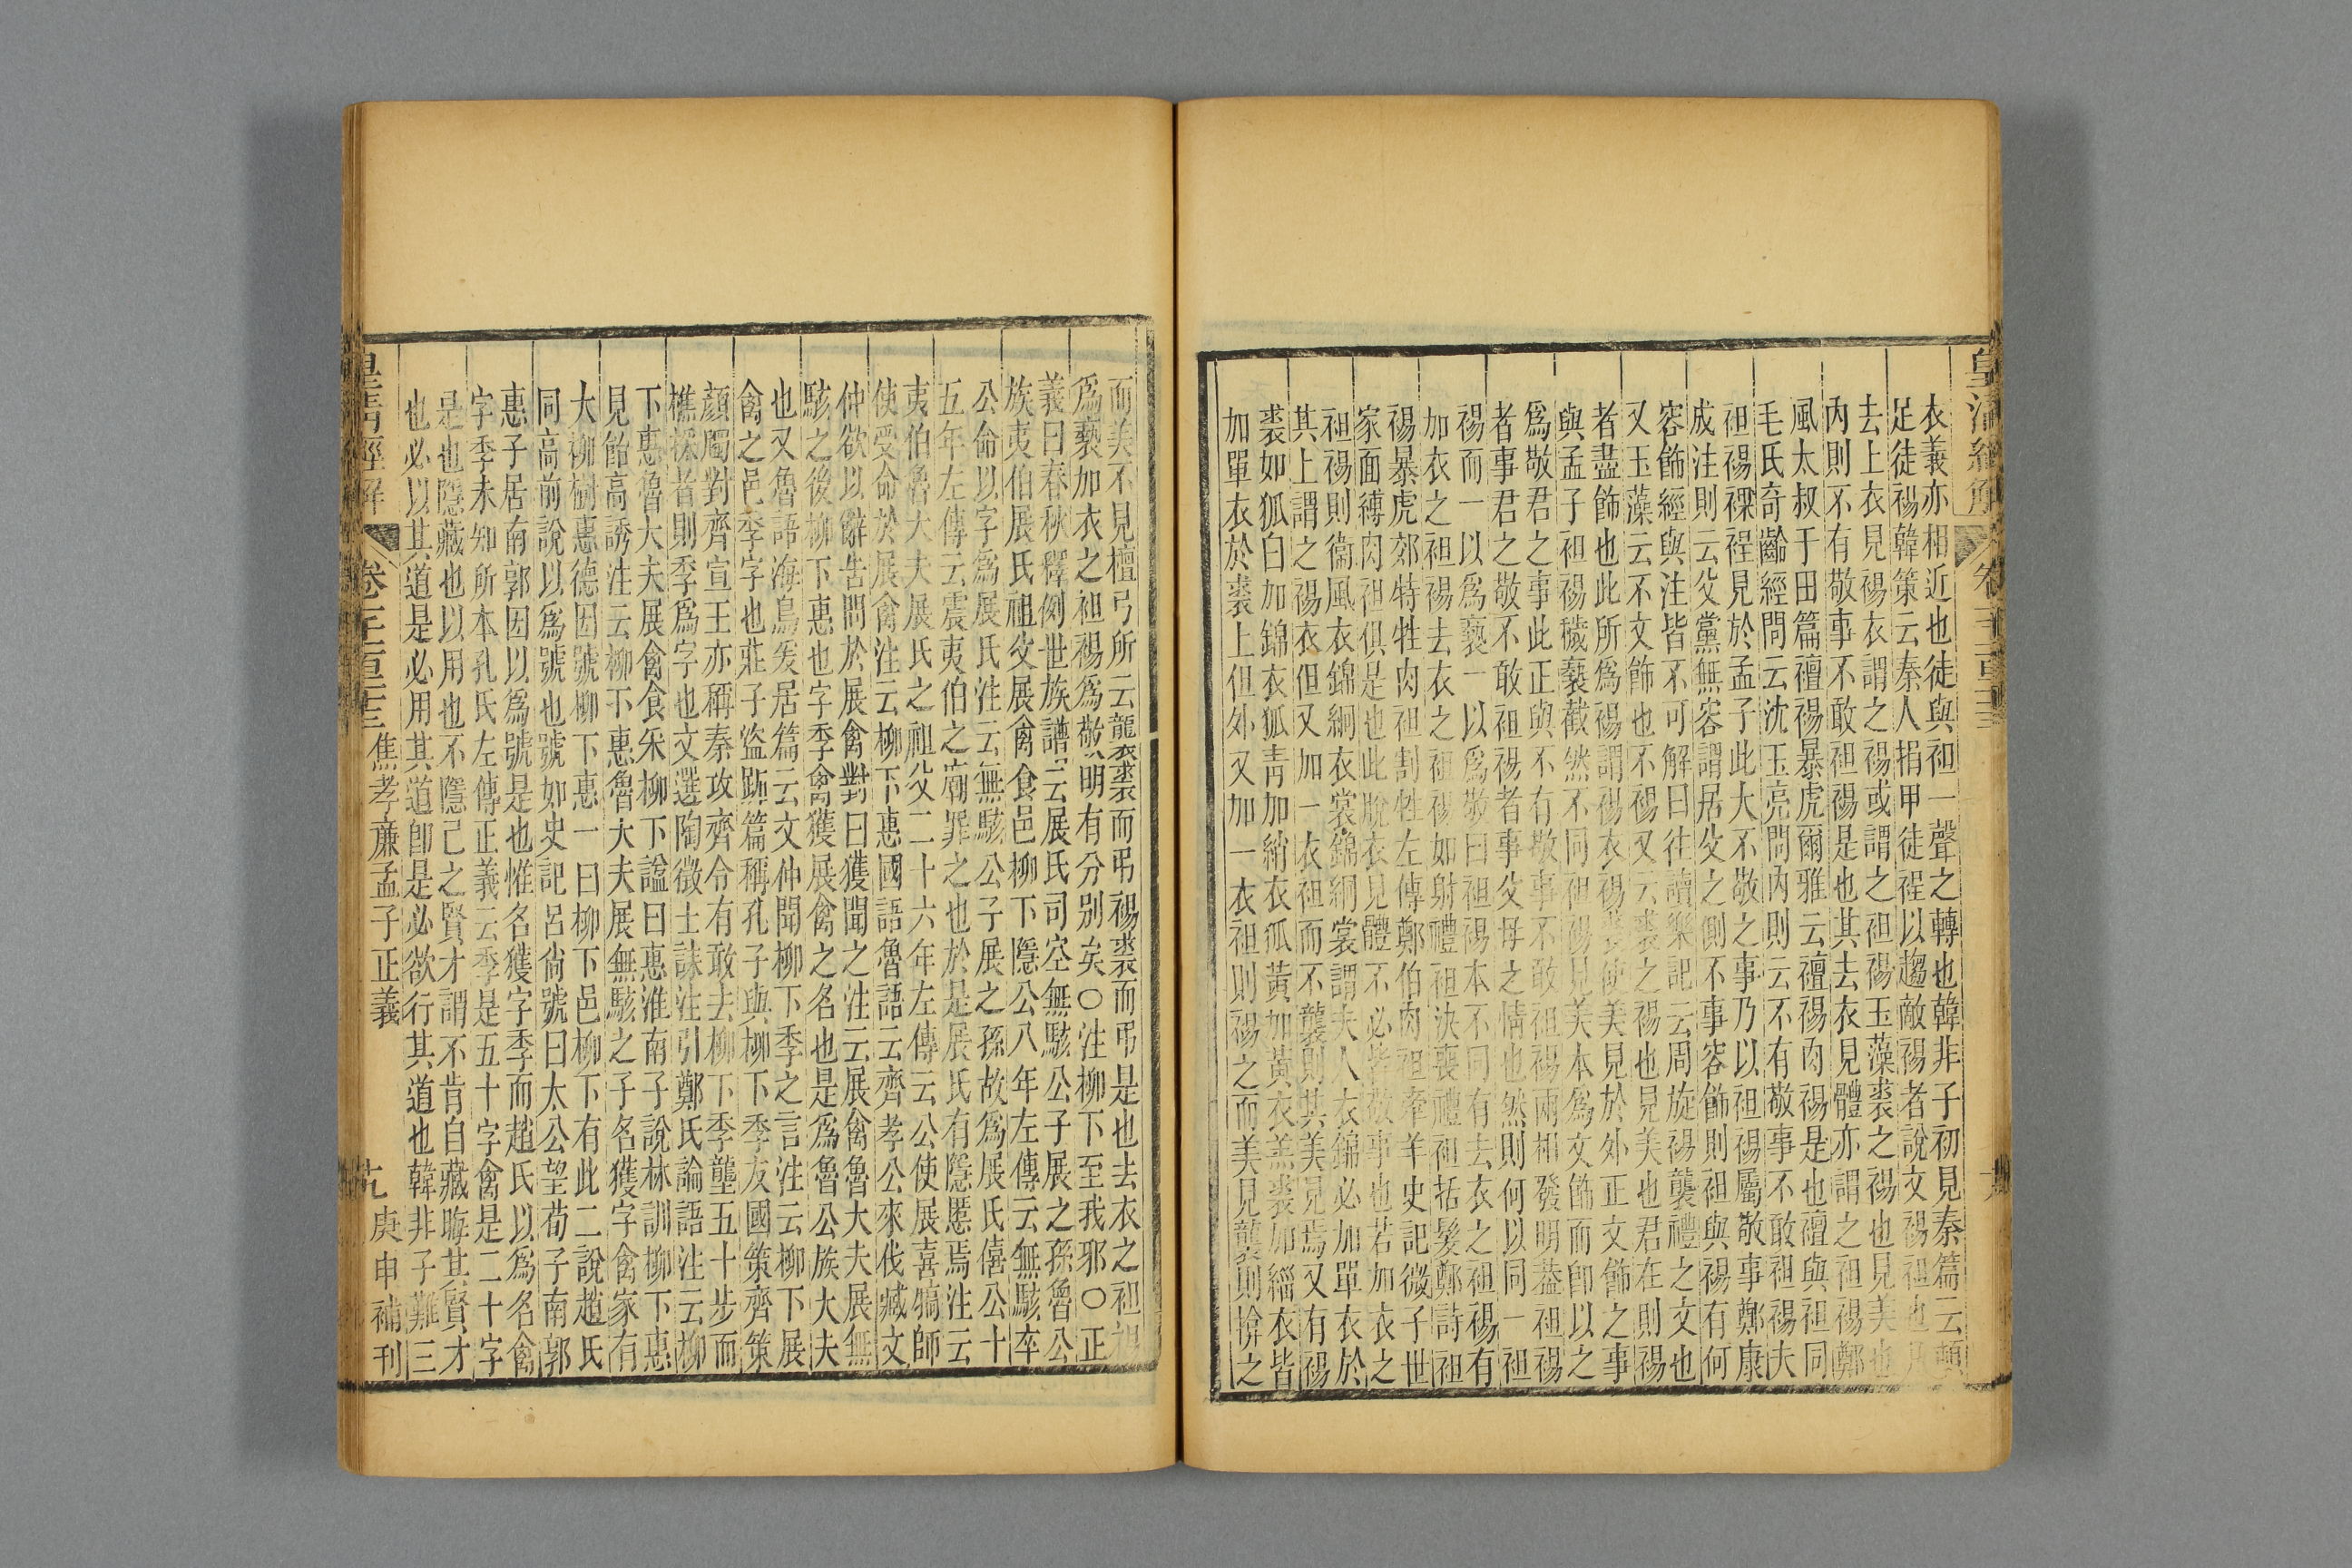 皇清經解 卷千一百二十三
衣義亦相近也徒與袒一聲之轉也韓非子初見秦篇云頓
足徒裼韓策云秦人捐甲徒裎以趨敵裼者說文裼袒也
去上衣見裼衣謂之裼或謂之袒裼玉藻裘之裼也見美也
內則不有敬事不敢袒裼是也其去衣見體亦謂之袒裼鄭
風太叔于田篇襢裼暴虎爾雅云襢裼肉裼是也襢與袒同
毛氏奇齡經問云沈玉亮問內則云不有敬事不敢袒裼夫
袒裼裸裎見於孟子此大不敬之事乃以袒裼屬敬事鄭康
成注則云父黨無容謂居父之側不事容飾則袒與裼有何
容飾經與注皆不可解曰往讀樂記云周旋裼襲禮之文也
又玉藻云不文飾也不裼又云裘之裼也見美也君在則裼
者盡飾也此所爲裼謂裼衣裼裘使美見於外正文飾之事
與孟子袒裼穢褻截然不同袒裼見美本爲文飾而卽以之
爲敬君之事此正與不有敬事不敢袒裼兩相發明葢袒裼
者事君之敬不敢袒裼者事父母之情也然則何以同一袒
裼而一以爲褻一以爲敬曰袒裼本不同有去衣之袒裼有
加衣之袒裼去衣之袒裼如射禮袒決喪禮袒括髮鄭詩袒
裼暴虎郊特牲肉袒割牲左傳鄭伯肉袒牽羊史記微子世
家面縛肉袒俱是也此脫衣見體不必皆敬事也若加衣之
袒裼則衞風衣錦絅衣裳錦絅裳謂夫人衣錦必加單衣於
其上謂之裼衣但又加一衣袒而不襲則其美見焉又有裼
裘如狐白加錦衣狐青加綃衣狐黃加黃衣羔裘加緇衣皆
加單衣於裘上但外又加一衣袒則裼之而美見襲則揜之
而美不見檀弓所云襲裘而弔裼裘而弔是也去衣之袒袒
爲褻加衣之袒裼爲敬明有分別矣〇注柳下至我邪〇正
義曰春秋釋例世族譜云展氏司空無駭公子展之孫魯公
族夷伯展氏祖父展禽食邑柳下隱公八年左傳云無駭卒
公命以字爲展氏注云無駭公子展之孫故爲展氏僖公十
五年左傳云震夷伯之廟罪之也於是展氏有隱慝焉注云
夷伯魯大夫展氏之祖父二十六年左傳云公使展喜犒師
使受命於展禽注云柳下惠國語魯語云齊孝公來伐臧文
仲欲以辭告問於展禽對曰獲聞之注云展禽魯大夫展無
駭之後柳下惠也字季禽獲展禽之名也是爲魯公族大夫
也又魯語海鳥爰居篇云文仲聞柳下季之言注云柳下展
禽之邑季字也莊子盜跖篇稱孔子與柳下季友國策齊策
顏斶對齊宣王亦稱秦攻齊令有敢去柳下季壟五十步而
樵採者則季爲字也文選陶徵士誄注引鄭氏論語注云柳
下惠魯大夫展禽食采柳下諡曰惠淮南子說林訓柳下惠
見飴高誘注云柳下惠魯大夫展無駭之子名獲字禽家有
大柳樹惠德因號柳下惠一曰柳下邑柳下有此二說趙氏
同高前說以爲號也號如史記呂尙號曰太公望荀子南郭
惠子居南郭因以爲號是也惟名獲字季而趙氏以爲名禽
字季未知所本孔氏左傳正義云季是五十字禽是二十字
是也隱藏也以用也不隱己之賢才謂不肯自藏晦其賢才
也必以其道是必用其道卽是必欲行其道也韓非子難三
皇清經解 卷千一百二十三 焦孝廉孟子正義 十九 庚申補刊